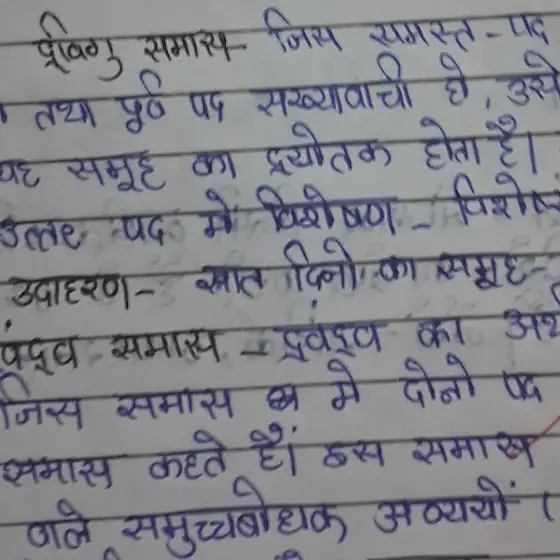 द्विगु समास- जिस समस्त-पद
तथा पूर्व पद संख्यावाची हो, उसे
यह समूह का द्योतक होता है।
उत्तर पद में विशेषण - विशेष
उदाहरण- सात दिनों का समूह-
द्वंद्व समास - द्वंद्व का अर्थ
जिस समास में दोनो पद
समास कहते हैं। इस समास
वाले समुच्चबोधक अव्ययों (